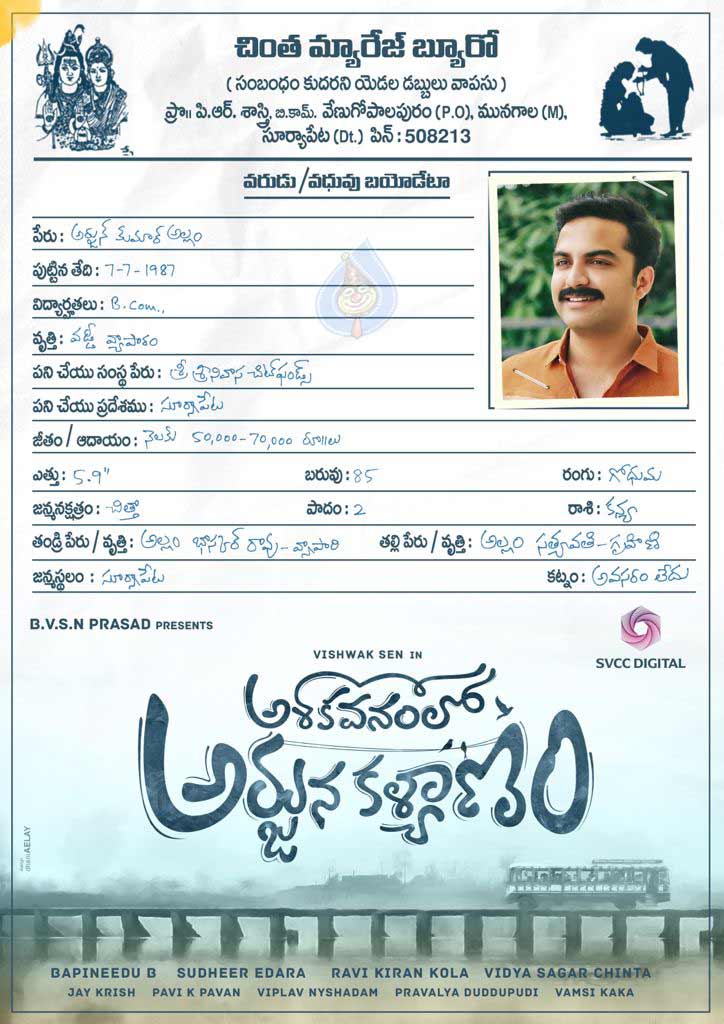 చింత మ్యారేజ్ బ్యూరో
( సంబంధం కుదరని యెడల డబ్బులు వాపసు )
ప్రొ౹౹ పి.ఆర్. శాస్త్రి, బి.కామ్. వేణుగోపాలపురం (P.O), మునగాల (M),
సూర్యాపేట (Dt.) పిన్ : 508213
వరుడు / వధువు బయోడేటా
పేరు : అర్జున్ కుమార్ అల్లం
పుట్టిన తేది : 7-7-1987
విద్యార్హతలు : B.com.,
వృత్తి : వడ్డీ వ్యాపారం
పని చేయు సంస్థ పేరు : శ్రీ శ్రీనివాస చిట్‌ఫండ్స్
పని చేయు ప్రదేశము : సూర్యాపేట
జీతం / ఆదాయం : నెలకు 50,000-70,000 రూ౹౹లు
ఎత్తు : 5.9" బరువు : 85 రంగు : గోధుమ
జన్మనక్షత్రం : చిత్తా పాదం : 2 రాశి : కన్య
తండ్రి పేరు / వృత్తి : అల్లం భాస్కర్ రావు - వ్యాపారి తల్లి పేరు / వృత్తి : అల్లం సత్యవతి - గృహిణి
జన్మస్థలం : సూర్యాపేట కట్నం : అవసరం లేదు
B.V.S.N PRASAD PRESENTS
SVCC DIGITAL
VISHWAK SEN IN
అశోకవనంలో
అర్జున కళ్యాణం
design
dhaniAELAY
BAPINEEDU B SUDHEER EDARA RAVI KIRAN KOLA VIDYA SAGAR CHINTA
JAY KRISH PAVI K PAVAN VIPLAV NYSHADAM PRAVALYA DUDDUPUDI VAMSI KAKA